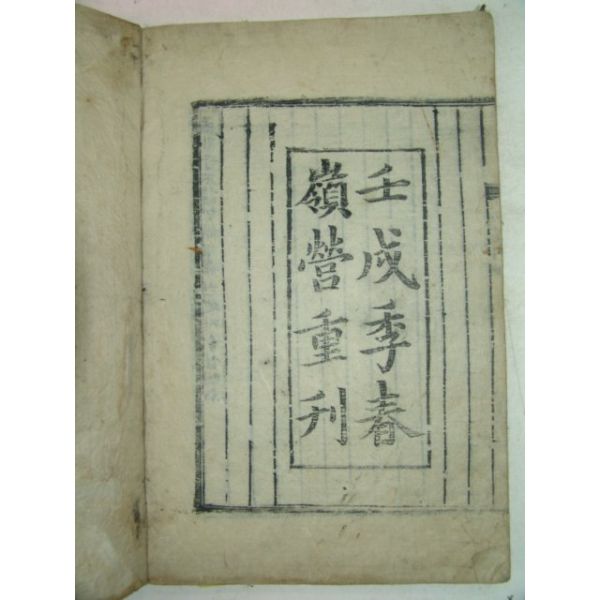 壬戌季春
嶺營重刊